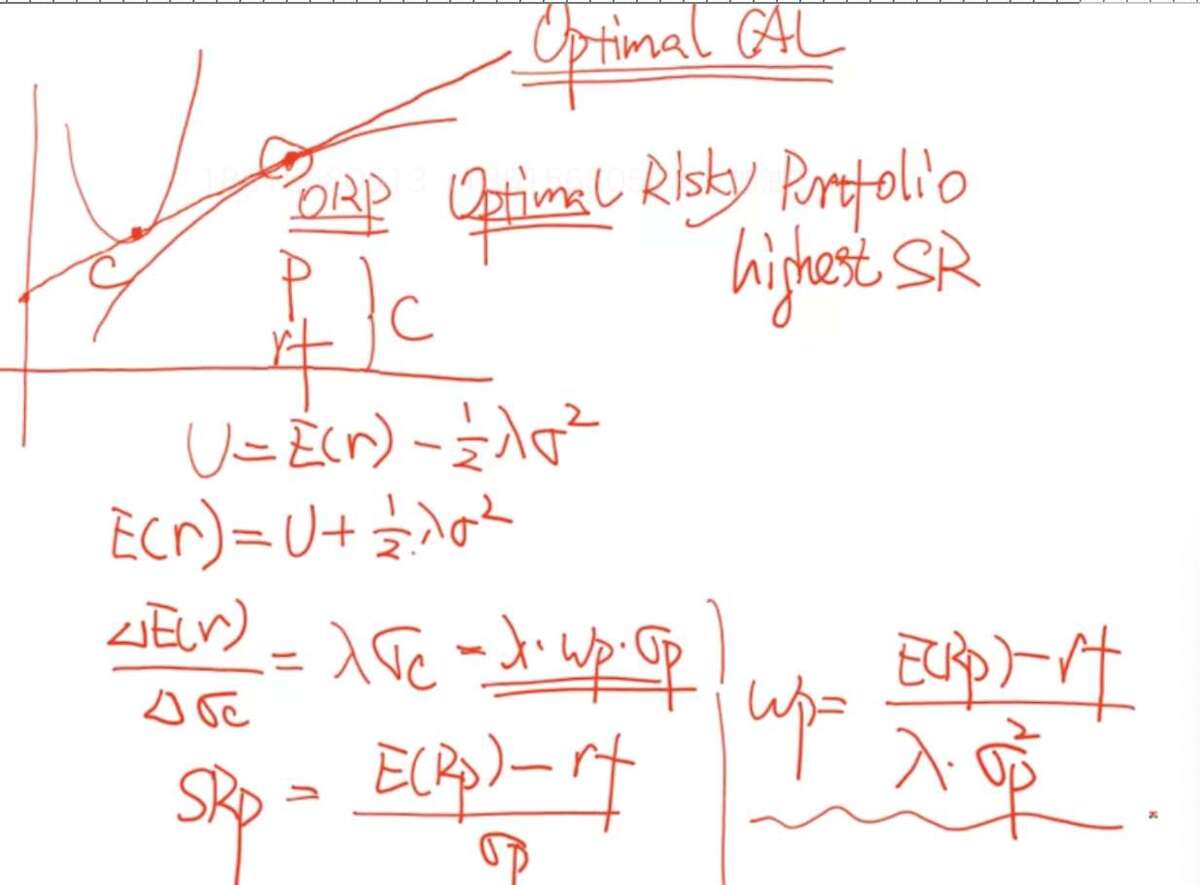 Optimal CAL
ORP Optimal Risky Portfolio
highest SR
C
P
rf } C
U = E(r) - 1/2 λσ²
E(r) = U + 1/2 λσ²
ΔE(r)/Δσc = λσc = λ·wp·σp
SRp = (E(Rp) - rf)/σp
wp = (E(Rp) - rf)/(λ·σp²)